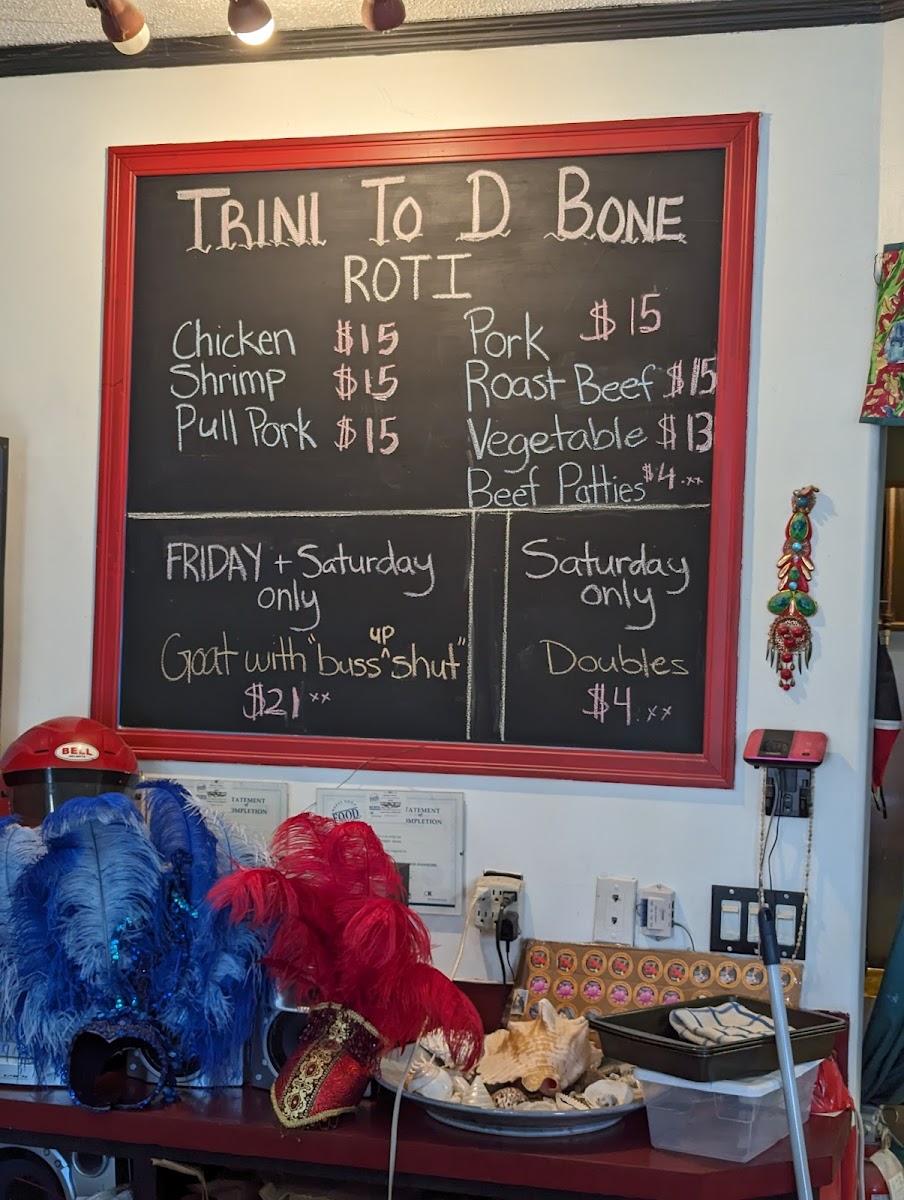 TRINI TO D BONE
ROTI
Chicken $15
Shrimp $15
Pull Pork $15
Pork $15
Roast Beef $15
Vegetable $13
Beef Patties $4.xx
FRIDAY + Saturday
only
Goat with "buss up shut"
$21 xx
Saturday
only
Doubles
$4.xx
BELL
TATEMENT
of
OMPLETION
FOOD
TATEMENT
of
OMPLETION